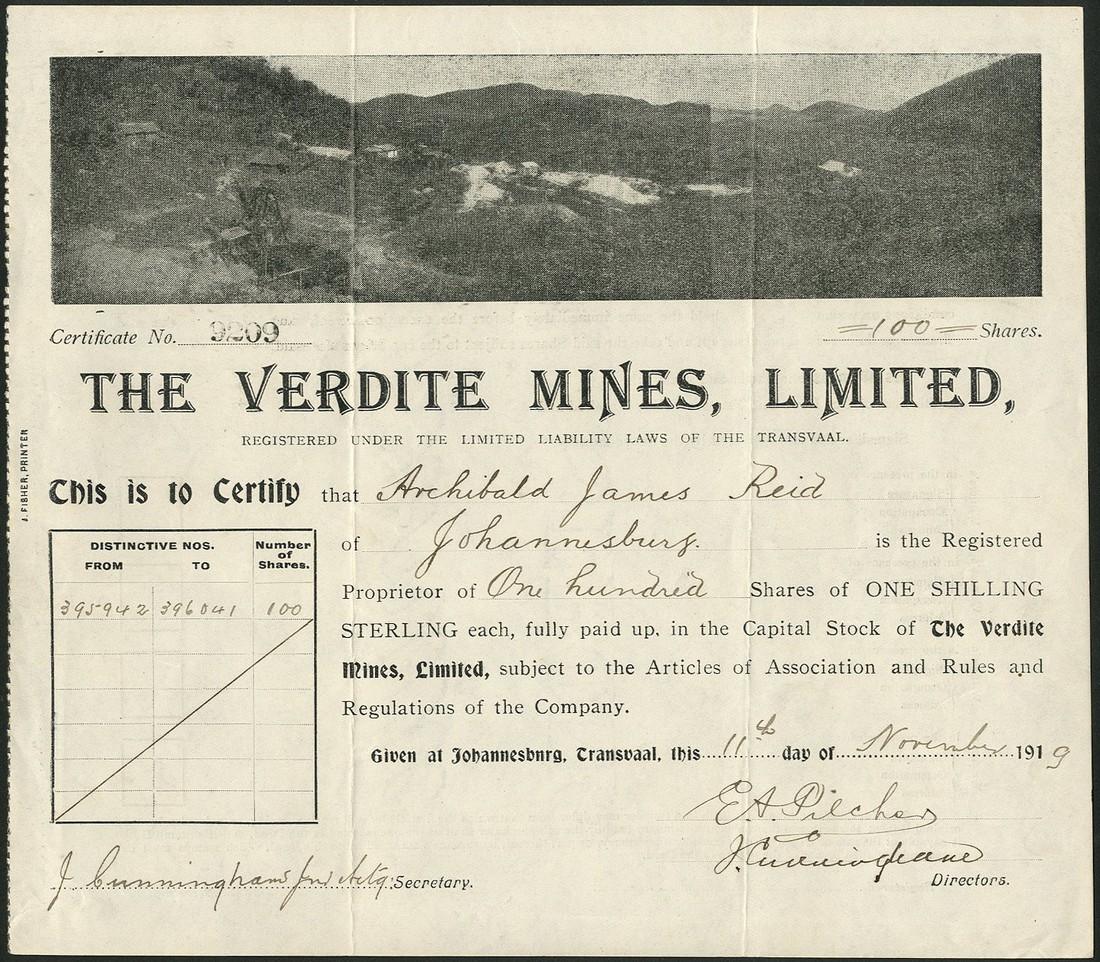 Certificate No. 9209 =100= Shares.
THE VERDITE MINES, LIMITED,
REGISTERED UNDER THE LIMITED LIABILITY LAWS OF THE TRANSVAAL.
J. FISHER, PRINTER
This is to Certify that Archibald James Reid
of Johannesburg. is the Registered
Proprietor of One hundred Shares of ONE SHILLING
STERLING each, fully paid up, in the Capital Stock of The Verdite
Mines, Limited, subject to the Articles of Association and Rules and
Regulations of the Company.
DISTINCTIVE NOS. Number of Shares.
FROM TO
395942 396041 100
Given at Johannesbnrg, Transvaal, this 11th day of November 1919
E.A. Pilcher
J. Cunninghame
Directors.
J. Cunninghame Jnr Actg. Secretary.